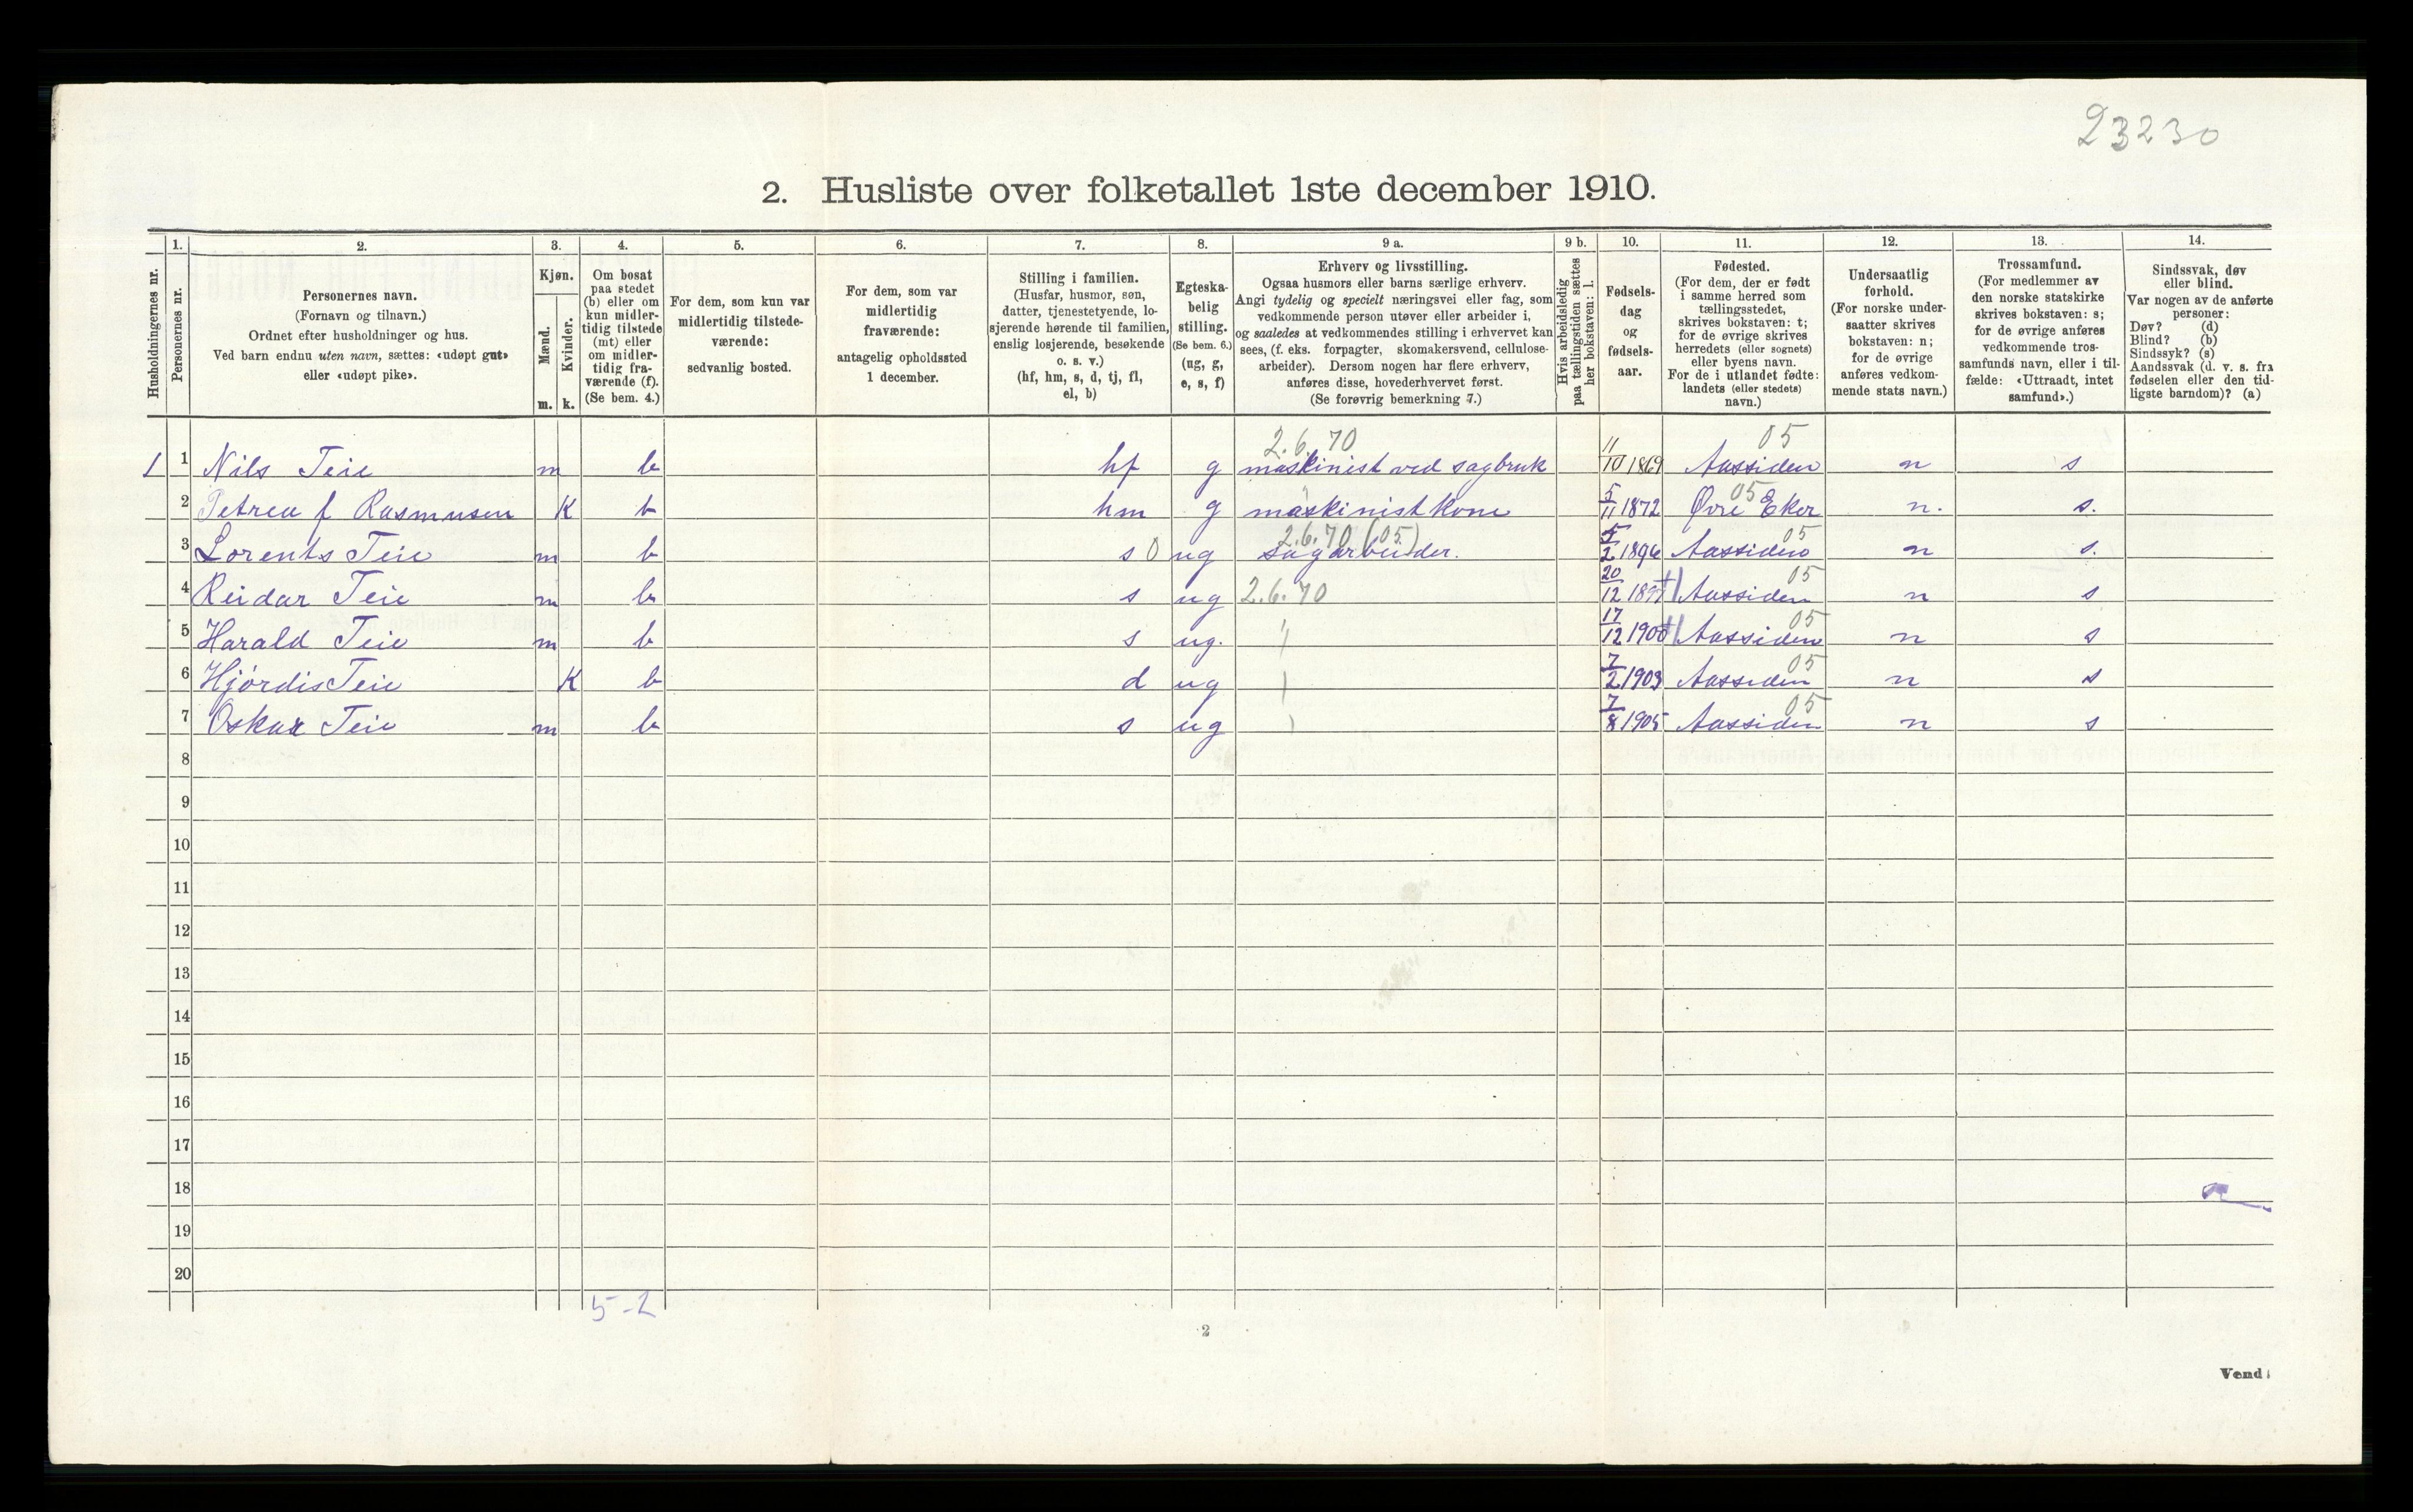 23230
2. Husliste over folketallet 1ste december 1910.
Husholdningernes nr.
1.
Personernes nr.
2.
Personernes navn.
(Fornavn og tilnavn.)
Ordnet efter husholdninger og hus.
Ved barn endnu uten navn, sættes: «udøpt gut»
eller «udøpt pike».
3.
Kjøn.
Mænd.
Kvinder.
m. k.
4.
Om bosat
paa stedet
(b) eller om
kun midler-
tidig tilstede
(mt) eller
om midler-
tidig fra-
værende (f).
(Se bem. 4.)
5.
For dem, som kun var
midlertidig tilstede-
værende:
sedvanlig bosted.
6.
For dem, som var
midlertidig
fraværende:
antagelig opholdssted
1 december.
7.
Stilling i familien.
(Husfar, husmor, søn,
datter, tjenestetyende, lo-
sjerende hørende til familien,
enslig losjerende, besøkende
o. s. v.)
(hf, hm, s, d, tj, fl,
el, b)
8.
Egteska-
belig
stilling.
(Se bem. 6.)
(ug, g,
e, s, f)
9 a.
Erhverv og livsstilling.
Ogsaa husmors eller barns særlige erhverv.
Angi tydelig og specielt næringsvei eller fag, som
vedkommende person utøver eller arbeider i,
og saaledes at vedkommendes stilling i erhvervet kan
sees, (f. eks. forpagter, skomakersvend, cellulose-
arbeider). Dersom nogen har flere erhverv,
anføres disse, hovederhvervet først.
(Se forøvrig bemerkning 7.)
9 b.
Hvis arbeidsledig
paa tællingstiden sættes
her bokstaven: l.
10.
Fødsels-
dag
og
fødsels-
aar.
11.
Fødested.
(For dem, der er født
i samme herred som
tællingsstedet,
skrives bokstaven: t;
for de øvrige skrives
herredets (eller sognets)
eller byens navn.
For de i utlandet fødte:
landets (eller stedets)
navn.)
12.
Undersaatlig
forhold.
(For norske under-
saatter skrives
bokstaven: n;
for de øvrige
anføres vedkom-
mende stats navn.)
13.
Trossamfund.
(For medlemmer av
den norske statskirke
skrives bokstaven: s;
for de øvrige anføres
vedkommende tros-
samfunds navn, eller i til-
fælde: «Uttraadt, intet
samfund».)
14.
Sindssvak, døv
eller blind.
Var nogen av de anførte
personer:
Døv? (d)
Blind? (b)
Sindssyk? (s)
Aandssvak (d. v. s. fra
fødselen eller den tid-
ligste barndom)? (a)
2.6.70 05
1 1 Nils Teie m b hf g maskinist ved sagbruk 11/10 1869 Aassiden n s
05
2 Petrea f Rasmusen K b hm g maskinist kone 5/11 1872 Øvre Eker n. s.
2.6.70 (05.) 05
3 Lorents Teie m b s 0 ug sagarbeider. 5/2 1896 Aassiden n s.
05
4 Reidar Teie m b s ug 2.6.70 20/12 Aassiden n s
05
5 Harald Teie m b s ug. 17/12 1900 Aassiden n s
05
6 Hjørdis Teie K b d ug 7/2 1903 Aassiden n s
05
7 Oskar Teie m b s ug 7/8 1905 Aassiden n s
8
9
10
11
12
13
14
15
16
17
18
19
20
5-2
2
Vend!